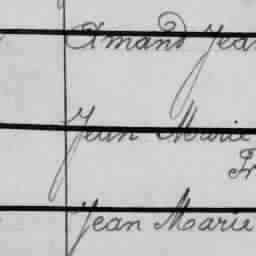 Amand Jean
Jean Marie
Fr
Jean Marie